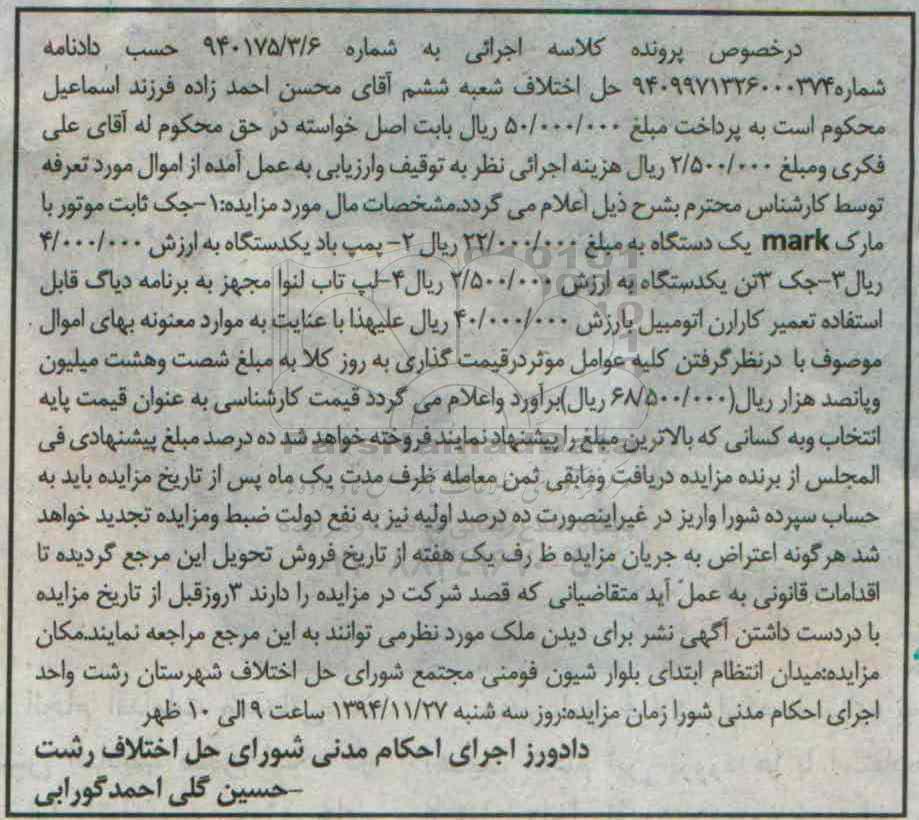 درخصوص پرونده کلاسه اجرائی به شماره ۹۴۰۱۷۵/۳/۶ حسب دادنامه
شماره۹۴۰۹۹۷۱۳۲۶۰۰۰۳۷۴ حل اختلاف شعبه ششم آقای محسن احمد زاده فرزند اسماعیل
محکوم است به پرداخت مبلغ ۵۰/۰۰۰/۰۰۰ ریال بابت اصل خواسته در حق محکوم له آقای علی
فکری ومبلغ ۲/۵۰۰/۰۰۰ ریال هزینه اجرائی نظر به توقیف وارزیابی به عمل آمده از اموال مورد تعرفه
توسط کارشناس محترم بشرح ذیل اعلام می گردد.مشخصات مال مورد مزایده:۱-جک ثابت موتور با
مارک mark یک دستگاه به مبلغ ۲۲/۰۰۰/۰۰۰ ریال ۲- پمپ باد یکدستگاه به ارزش ۴/۰۰۰/۰۰۰
ریال۳-جک ۳تن یکدستگاه به ارزش ۲/۵۰۰/۰۰۰ ریال۴-لپ تاب لنوا مجهز به برنامه دیاگ قابل
استفاده تعمیر کارارن اتومبیل بارزش ۴۰/۰۰۰/۰۰۰ ریال علیهذا با عنایت به موارد معنونه بهای اموال
موصوف با درنظرگرفتن کلیه عوامل موثردرقیمت گذاری به روز کلا به مبلغ شصت وهشت میلیون
وپانصد هزار ریال(۶۸/۵۰۰/۰۰۰ ریال)برآورد واعلام می گردد قیمت کارشناسی به عنوان قیمت پایه
انتخاب وبه کسانی که بالاترین مبلغ را پیشنهاد نمایند فروخته خواهد شد ده درصد مبلغ پیشنهادی فی
المجلس از برنده مزایده دریافت ومابقی ثمن معامله ظرف مدت یک ماه پس از تاریخ مزایده باید به
حساب سپرده شورا واریز در غیراینصورت ده درصد اولیه نیز به نفع دولت ضبط ومزایده تجدید خواهد
شد هرگونه اعتراض به جریان مزایده ظ رف یک هفته از تاریخ فروش تحویل این مرجع گردیده تا
اقدامات قانونی به عمل آید متقاضیانی که قصد شرکت در مزایده را دارند ۳روزقبل از تاریخ مزایده
با دردست داشتن آگهی نشر برای دیدن ملک مورد نظرمی توانند به این مرجع مراجعه نمایند.مکان
مزایده:میدان انتظام ابتدای بلوار شیون فومنی مجتمع شورای حل اختلاف شهرستان رشت واحد
اجرای احکام مدنی شورا زمان مزایده:روز سه شنبه ۱۳۹۴/۱۱/۲۷ ساعت ۹ الی ۱۰ ظهر
دادورز اجرای احکام مدنی شورای حل اختلاف رشت
-حسین گلی احمدگورابی